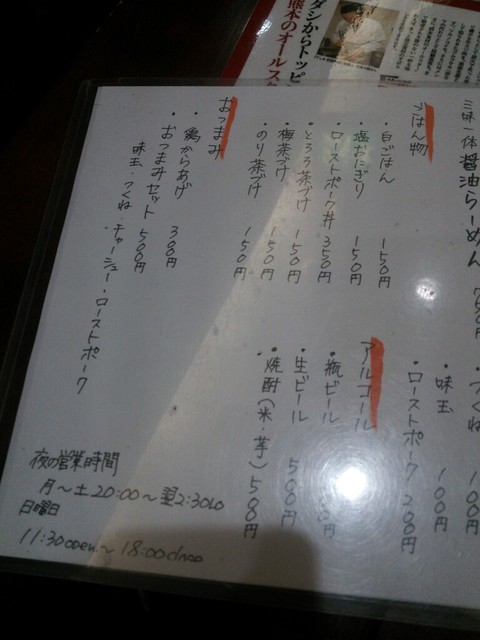 ダシからトッピン
熊本のオールスタ
三味一体醤油らーめん
・つくね 100円
・味玉 100円
・ローストポーク 200円
ごはん物
・白ごはん 150円
・塩おにぎり 150円
・ローストポーク丼 350円
・とろろ茶づけ 150円
・梅茶づけ 150円
・のり茶づけ 150円
アルコール
・瓶ビール
・生ビール 500円
・焼酎(米・芋) 500円
おつまみ
・鶏からあげ 300円
・おつまみセット 500円
味玉・つくね・チャーシュー・ローストポーク
夜の営業時間
月〜土20:00〜翌2:30LO
日曜日
11:30 〜18:00